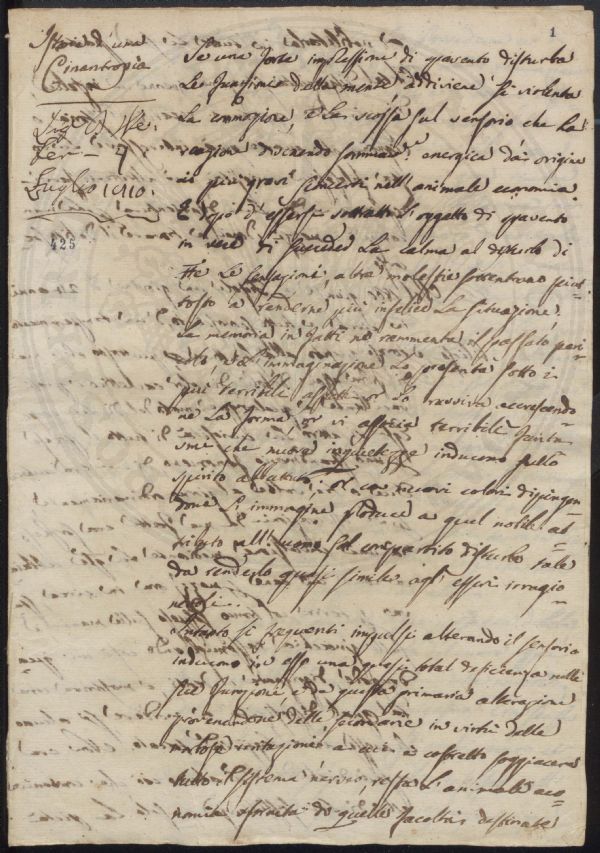 1
Istoria d'una
Cinantropia
Luglio 1810.
425
Se una forte impressione di spavento disturba
le funzioni della mente addiviene sì violenta
la emozione, e la scossa sul sensorio che la
reazione divenendo energica dà origine
ai più gravi nell'animale economia.
E dopo d'essersi sottratto l'oggetto di spavento
in vece di succeder la calma al disturbo di
le sensazioni, altre molestie sottentrano piut-
tosto a renderne più infelice la situazione.
La memoria in fatti ne rammenta il passato peri-
colo, e l'immaginazione lo presenta sotto i
più terribili aspetti or lo ravviva accrescendo
ne la forma, or vi associa terribili fantas-
smi che nuova inquietezze inducono sullo
spirito abbattuto; e con nuovi colori dipingen-
done l'immagine produce a quel nobile at-
tributo all'uomo sol compartito disturbo tale
da renderlo quasi simile agli esseri irragio-
nevoli.
Intanto i frequenti impulsi alterando il sensorio
inducono in esso una quasi total deficienza nelle
sue funzioni e da questa primaria alterazione
provenendone delle secondarie in virtù delle
irritazioni a cui è costretto soggiacere
tutto il sistema nervoso, resta l'animale eco-
nomia sfornita di quelle facoltà destinate